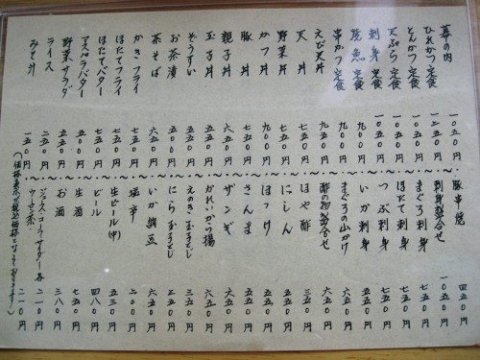 幕の内 一〇五〇円
ひれかつ定食 一二五〇円
とんかつ定食 一〇五〇円
天ぷら定食 一〇五〇円
刺身定食 一〇五〇円
焼魚定食 九〇〇円
串かつ定食 九〇〇円
えび天丼 九五〇円
天丼 七五〇円
野菜丼 七五〇円
かつ丼 九〇〇円
豚丼 七五〇円
親子丼 六五〇円
玉子丼 五五〇円
ぞうすい 五五〇円
お茶漬 五〇〇円
茶そば 六五〇円
かきフライ 七五〇円
ほたてフライ 七五〇円
ほたてバター 七五〇円
アスパラバター 五五〇円
野菜サラダ 五五〇円
ライス 二〇〇円
みそ汁 一五〇円
豚串焼 四五〇円
刺身盛合せ 一〇五〇円
まぐろ刺身 七五〇円
ほたて刺身 七五〇円
つぶ刺身 七五〇円
いか刺身 五五〇円
まぐろの山かけ 六五〇円
酢の物盛合せ 六五〇円
ほや酢 五五〇円
にしん 五五〇円
ほっけ 五五〇円
さんま 五五〇円
ザンギ 六五〇円
かれいから揚 六五〇円
えのき玉子とじ 三五〇円
にら玉子とじ 三五〇円
いか納豆 六五〇円
塩辛 二〇〇円
生ビール(中) 五三〇円
ビール 四八〇円
生酒 七五〇円
お酒 三八〇円
ジュース・コーラ・サイダー各 二一〇円
ウーロン茶 二一〇円
(価格表示は税込価格となっております)